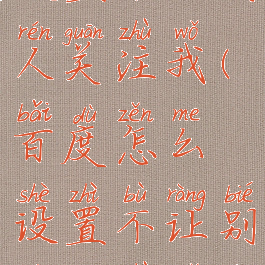 rén guān zhù wǒ
人关注我(
bǎi dù zěn me
百度怎么
shè zhì bù ràng bié
设置不让别